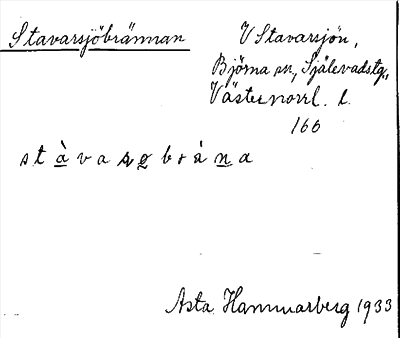 Stavarsjöbrännan
V Stavarsjön,
Björna sn, Själevadstg.,
Västernorrl. l.
166
s t à v a s ø b r á n a
Asta Hammarberg 1933